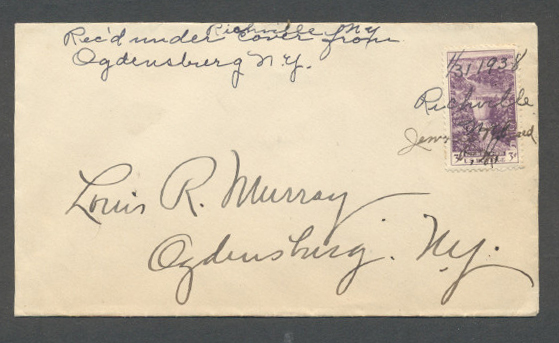 Richville Ny
Rec'd under cover from
Ogdensburg N.Y.
1/31 1938
Richville
Louis R. Murray
Ogdensburg. Ny.